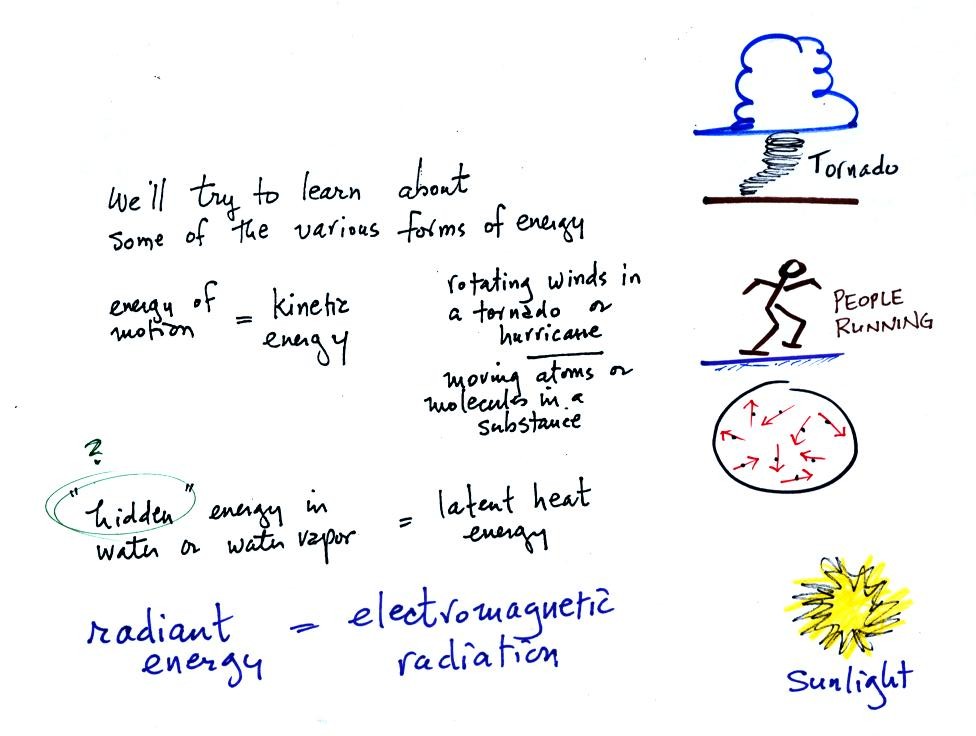 We'll try to learn about
some of the various forms of energy
energy of
motion
=
kinetic
energy
rotating winds in
a tornado or
hurricane
moving atoms or
molecules in a
substance
Tornado
PEOPLE
RUNNING
?
"hidden" energy in
water or water vapor
=
latent heat
energy
radiant
energy
=
electromagnetic
radiation
Sunlight